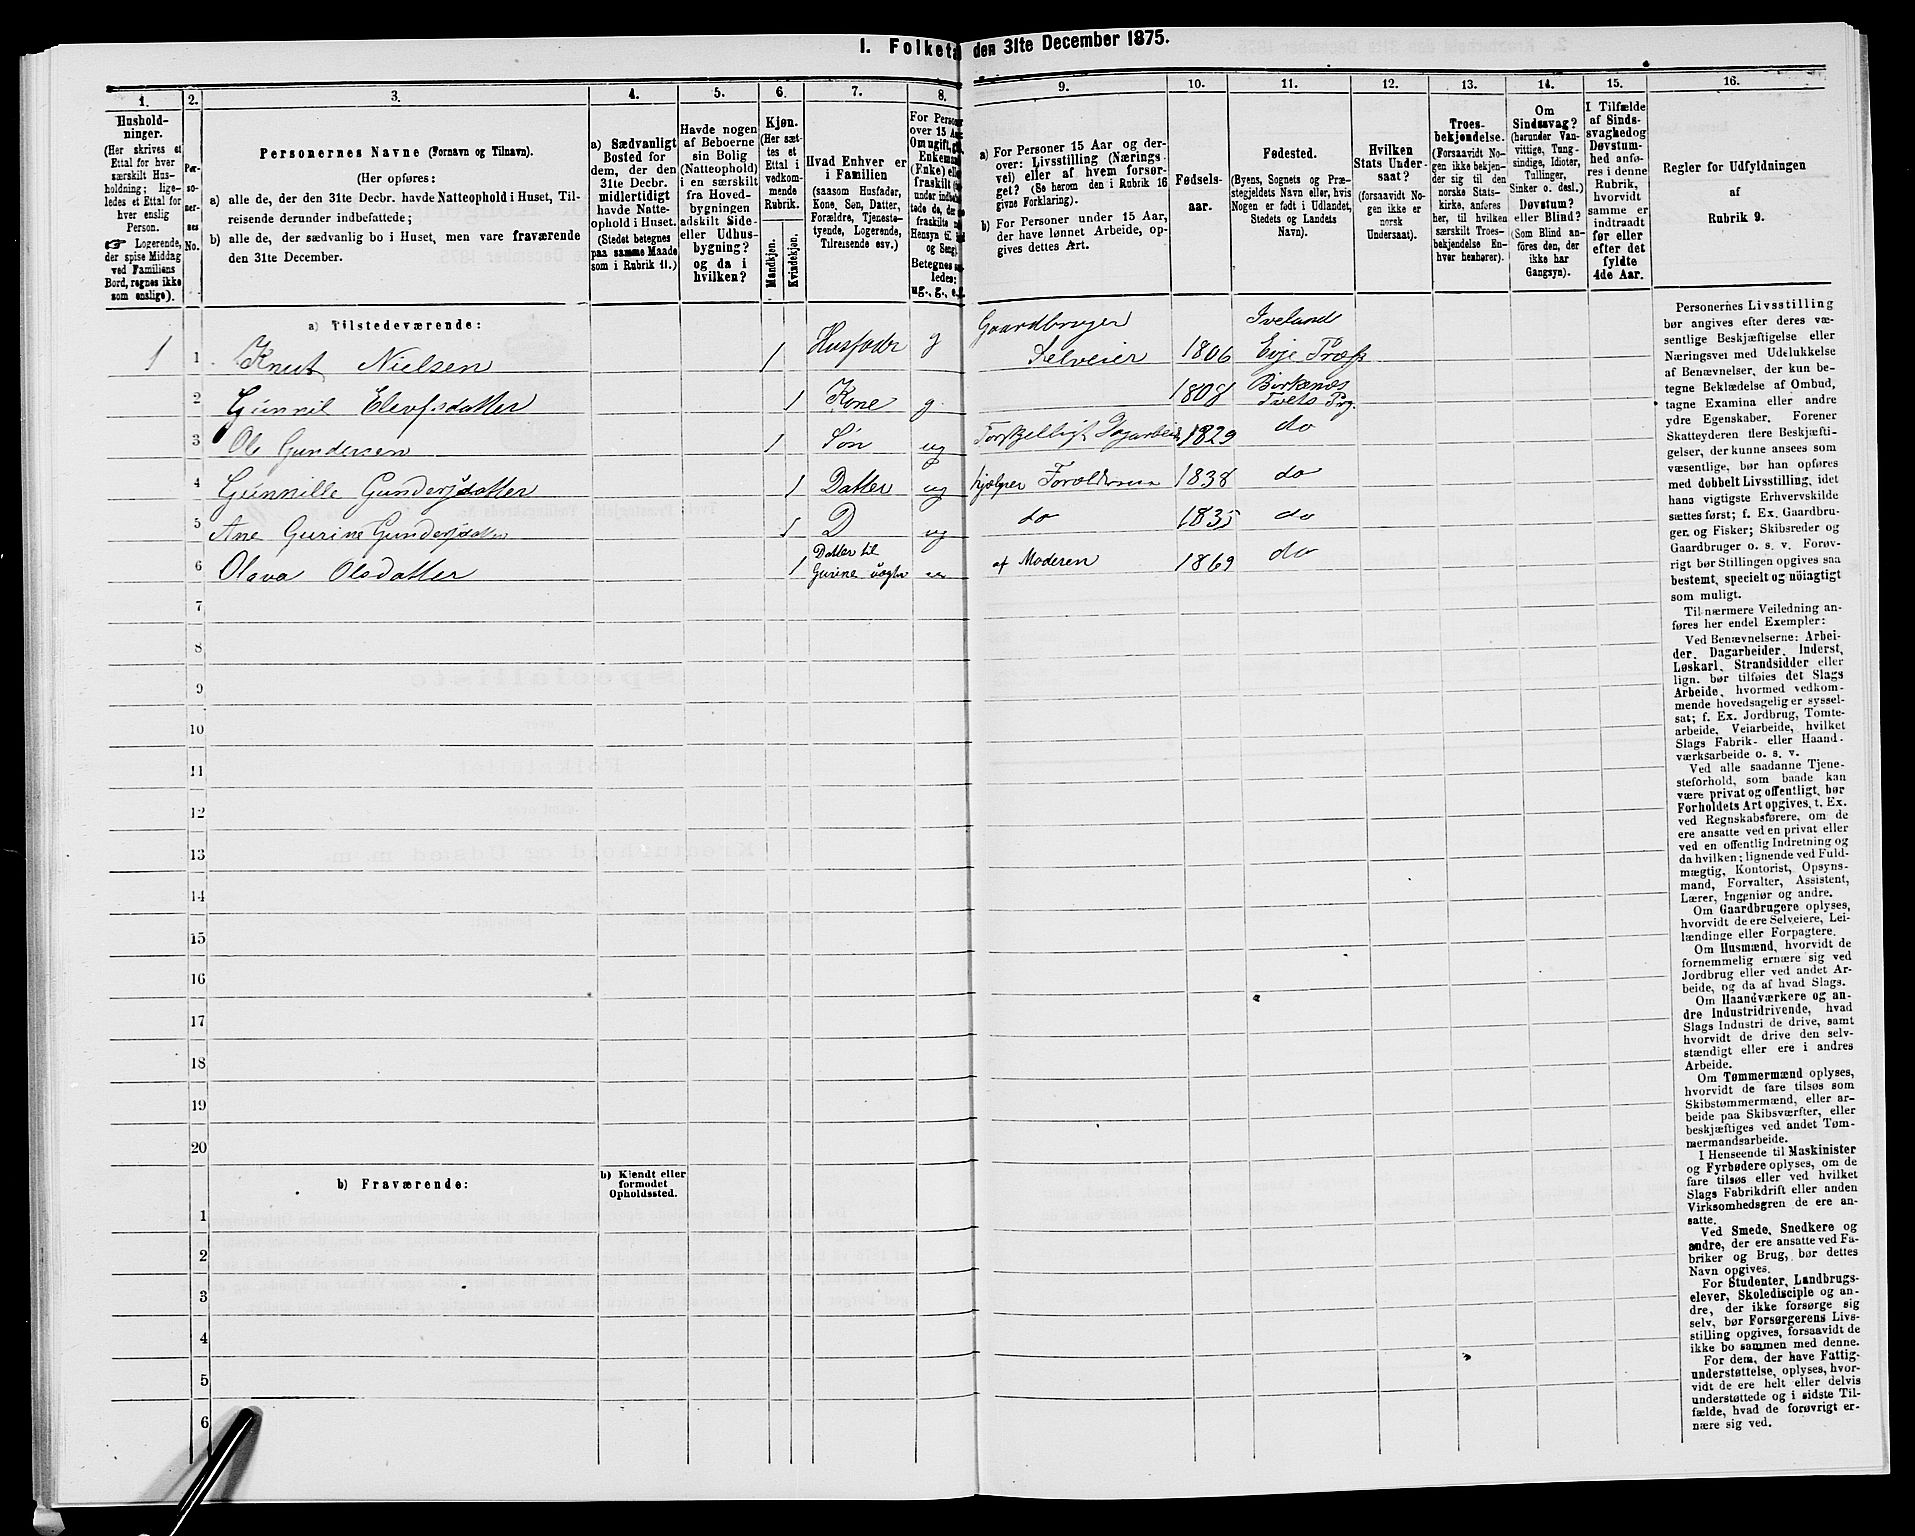 I. Folketa den 31te December 1875.
1. 2. 3. 4. 5. 6. 7. 8. 9. 10. 11. 12. 13. 14. 15. 16.
Hushold-
ninger.
(Her skrives et
Ettal for hver
særskilt Hus-
holdning; lige-
ledes et Ettal for
hver enslig
Person.
☞ Logerende,
der spise Middag
ved Familiens
Bord, regnes ikke
som enslige).
Per-
so-
ner-
nes
No.
Personernes Navne (Fornavn og Tilnavn).
(Her opføres:
a) alle de, der den 31te Decbr. havde Natteophold i Huset, Til-
reisende derunder indbefattede;
b) alle de, der sædvanlig bo i Huset, men vare fraværende
den 31te December.
a) Sædvanligt
Bosted for
dem, der den
31te Decbr.
midlertidigt
havde Natte-
ophold i Huset.
(Stedet betegnes
paa samme Maade
som i Rubrik 11.)
Havde nogen
af Beboerne
sin Bolig
(Natteophold)
i en særskilt
fra Hoved-
bygningen
adskilt Side-
eller Udhus-
bygning?
og da i
hvilken?
Kjøn.
(Her sæt-
tes et
Ettal i
vedkom-
mende
Rubrik.
Mandkjøn.
Kvindekjøn.
Hvad Enhver er
i Familien
(saasom Husfader,
Kone, Søn, Datter,
Forældre, Tjeneste-
tyende, Logerende,
Tilreisende osv.)
For Persone
over 15 Aar
Om ugift, gift
Enkemand
(Enke) eller
fraskilt
Betegnes saa-
ledes:
ug., g., e.
a) For Personer 15 Aar og der-
over: Livsstilling (Nærings-
vei) eller af hvem forsør-
get? (Se herom den i Rubrik 16
givne Forklaring).
b) For Personer under 15 Aar,
der have lønnet Arbeide, op-
gives dettes Art.
Fødsels-
aar.
Fødested.
(Byens, Sognets og Præ-
stegjeldets Navn eller, hvis
Nogen er født i Udlandet,
Stedets og Landets
Navn).
Hvilken
Stats Under-
saat?
(forsaavidt No-
gen ikke er
norsk
Undersaat).
Troes-
bekjendelse.
(Forsaavidt No-
gen ikke bekjen-
der sig til den
norske Stats-
kirke, anføres
her, til hvilken
særskilt Troes-
bekjendelse En-
hver henhører).
Om
Sindssvag?
(herunder Van-
vittige, Tung-
sindige, Idioter,
Tullinger,
Sinker o. desl.)
Døvstum?
eller Blind?
(Som Blind an-
føres den, der
ikke har
Gangsyn).
I Tilfælde
af Sinds-
svaghed og
Døvstum-
hed anfø-
res i denne
Rubrik,
hvorvidt
samme er
indtraadt
før eller
efter det
fyldte
4de Aar.
Regler for Udfyldningen
af
Rubrik 9.
a) Tilstedeværende:
1 1 Knut Nielsen 1 Husfader g Gaardbruger Selveier 1806 Iveland Evje Præst
2 Gunnil Elevsdatter 1 Kone g. 1808 Birkenes Tvets Prg.
3 Ole Gundersen 1 Søn ug Forskjelligt Dagarbeide 1829 do
4 Gunnille Gundersdatter 1 Datter ug hjælper Forældrene 1838 do
5 Ane Gurine Gundersdatter 1 D ug do 1835 do
6 Olava Olsdatter 1 Datter til Gurine uægte af Moderen 1869 do
7
8
9
10
11
12
13
14
15
16
17
18
19
20
b) Fraværende:
b) Kjendt eller
formodet
Opholdssted.
1
2
3
4
5
6
Personernes Livsstilling
bør angives efter deres væ-
sentlige Beskjæftigelse eller
Næringsvei med Udelukkelse
af Benævnelser, der kun be-
tegne Beklædelse af Ombud,
tagne Examina eller andre
ydre Egenskaber. Forener
Skatteyderen flere Beskjæfti-
gelser, der kunne ansees som
væsentlige, bør han opføres
med dobbelt Livsstilling, idet
hans vigtigste Erhvervskilde
sættes først; f. Ex. Gaardbru-
ger og Fisker; Skibsreder og
Gaardbruger o. s. v. Forøv-
rigt bør Stillingen opgives saa
bestemt, specielt og nöiagtigt
som muligt.
Til nærmere Veiledning an-
føres her endel Exempler:
Ved Benævnelserne: Arbei-
der, Dagarbeider, Inderst,
Løskarl, Strandsidder eller
lign. bør tilføies det Slags
Arbeide, hvormed vedkom-
mende hovedsagelig er syssel-
sat; f. Ex. Jordbrug, Tomte-
arbeide, Veiarbeide, hvilket
Slags Fabrik- eller Haand-
værksarbeide o. s. v.
Ved alle saadanne Tjene-
steforhold, som baade kan
være privat og offentligt, bør
Forholdets Art opgives, t. Ex.
ved Regnskabsførere, om de
ere ansatte ved en privat eller
ved en offentlig Indretning og
da hvilken; lignende ved Fuld-
mægtig, Kontorist, Opsyns-
mand, Forvalter, Assistent,
Lærer, Ingeniør og andre.
Om Gaardbrugere oplyses,
hvorvidt de ere Selveiere, Lei-
lændinge eller Forpagtere.
Om Husmænd, hvorvidt de
fornemmelig ernære sig ved
Jordbrug eller ved andet Ar-
beide, og da af hvad Slags.
Om Haandværkere og an-
dre Industridrivende, hvad
Slags Industri de drive, samt
hvorvidt de drive den selv-
stændigt eller ere i andres
Arbeide.
Om Tømmermænd oplyses,
hvorvidt de fare tilsøs som
Skibstømmermænd, eller ar-
beide paa Skibsværfter, eller
beskjæftiges ved andet Tøm-
mermandsarbeide.
I Henseende til Maskinister
og Fyrbødere oplyses, om de
fare tilsøs eller ved hvilket
Slags Fabrikdrift eller anden
Virksomhedsgren de ere an-
satte.
Ved Smede, Snedkere og
andre, der ere ansatte ved Fa-
briker og Brug, bør dettes
Navn opgives.
For Studenter, Landbrugs-
elever, Skoledisciple og an-
dre, der ikke forsørge sig
selv, bør Forsørgerens Livs-
stilling opgives, forsaavidt de
ikke bo sammen med denne.
For dem, der have Fattig-
understøttelse, oplyses, hvor-
vidt de ere helt eller delvis
understøttede og i sidste Til-
fælde, hvad de forøvrigt er-
nære sig ved.